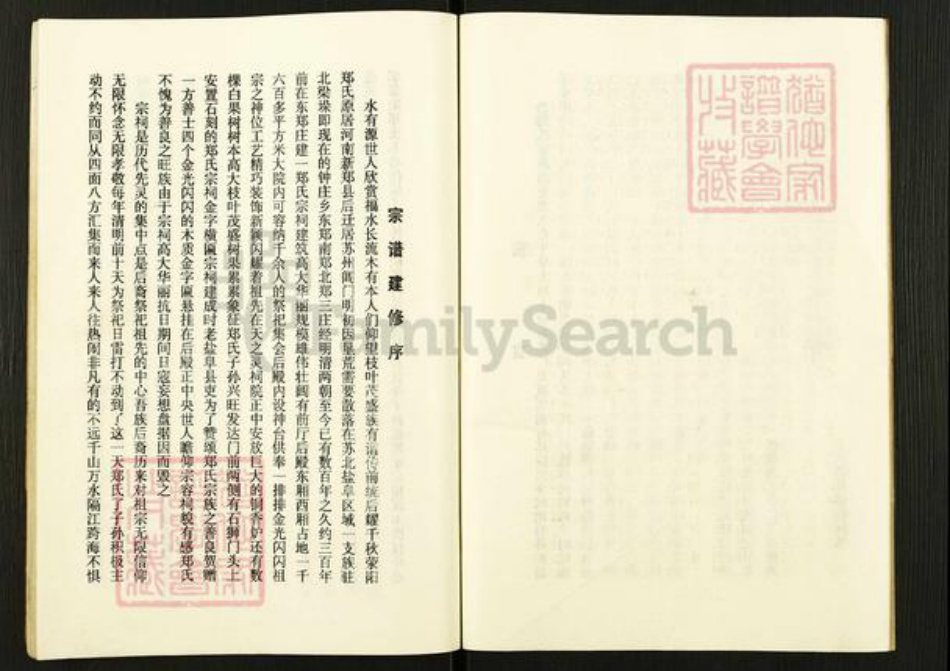 猶他家
譜學會
收藏
宗谱建修序
水有源世人欣赏福水长流木有本人们仰望枝叶茂盛族有谱传前统后耀千秋荥阳
郑氏原居河南新郑县后迁居苏州阊门明初因垦荒需要散落在苏北盐阜区域一支族驻
北梁垛即现在的钟庄乡东郑南郑北郑三庄经明清两朝至今已有数百年之久约三百年
前在东郑庄建一郑氏宗祠建筑高大华丽规模雄伟壮阔有前厅后殿东厢西厢占地一千
六百多平方米大院内可容纳千余人的祭祀集会后殿内设神台供奉一排排金光闪闪祖
宗之神位工艺精巧装饰新颖闪耀着祖先在天之灵祠院正中安放巨大的铜香炉还有数
棵白果树树本高大枝叶茂盛树果累累象征郑氏子孙兴旺发达门前两侧有石狮门头上
安置石刻的郑氏宗祠金字横匾宗祠建成时老盐阜县吏为了赞颂郑氏宗族之善良贺赠
一方善士四个金光闪闪的木质金字匾悬挂在后殿正中央世人瞻仰宗容祠貌有感郑氏
不愧为善良之旺族由于宗祠高大华丽抗日期间日寇妄想盘据因而毁之
宗祠是历代先灵的集中点是后裔祭祀祖先的中心吾族后裔历来对祖宗无限信仰
无限怀念无限孝敬每年清明前十天为祭祀日雷打不动到了这一天郑氏子子孙积极主
动不约而同从四面八方汇集而来人来人往热闹非凡有的不远千山万水隔江跨海不惧
FamilySearch